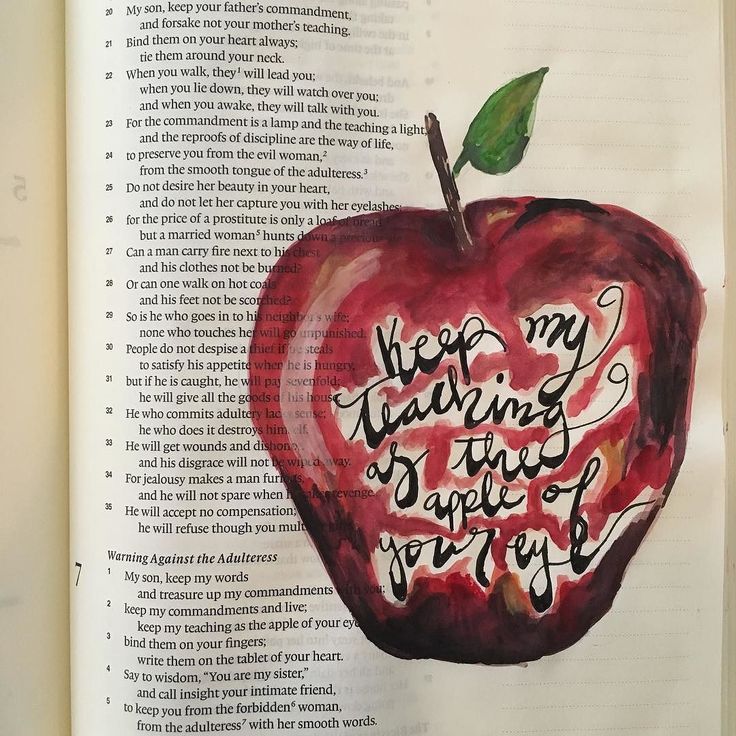 20 My son, keep your father's commandment,
and forsake not your mother's teaching.
21 Bind them on your heart always;
tie them around your neck.
22 When you walk, they¹ will lead you;
when you lie down, they will watch over you;
and when you awake, they will talk with you.
23 For the commandment is a lamp and the teaching a light,
and the reproofs of discipline are the way of life,
24 to preserve you from the evil woman,²
from the smooth tongue of the adulteress.³
25 Do not desire her beauty in your heart,
and do not let her capture you with her eyelashes;
26 for the price of a prostitute is only a loaf of bread
but a married woman⁵ hunts down a precious
27 Can a man carry fire next to his chest
and his clothes not be burned?
28 Or can one walk on hot coals
and his feet not be scorched?
29 So is he who goes in to his neighbor's wife;
none who touches her will go unpunished.
30 People do not despise a thief if he steals
to satisfy his appetite when he is hungry,
31 but if he is caught, he will pay sevenfold;
he will give all the goods of his house.
32 He who commits adultery lacks sense;
he who does it destroys himself.
33 He will get wounds and dishonor
and his disgrace will not be wiped away.
34 For jealousy makes a man furious,
and he will not spare when he takes revenge.
35 He will accept no compensation;
he will refuse though you
Warning Against the Adulteress
7
1 My son, keep my words
and treasure up my commandments with you;
2 keep my commandments and live;
keep my teaching as the apple of your eye
3 bind them on your fingers;
write them on the tablet of your heart.
4 Say to wisdom, "You are my sister,"
and call insight your intimate friend,
5 to keep you from the forbidden⁶ woman,
from the adulteress⁷ with her smooth words.
Keep my
teaching
as the
apple of
your eye